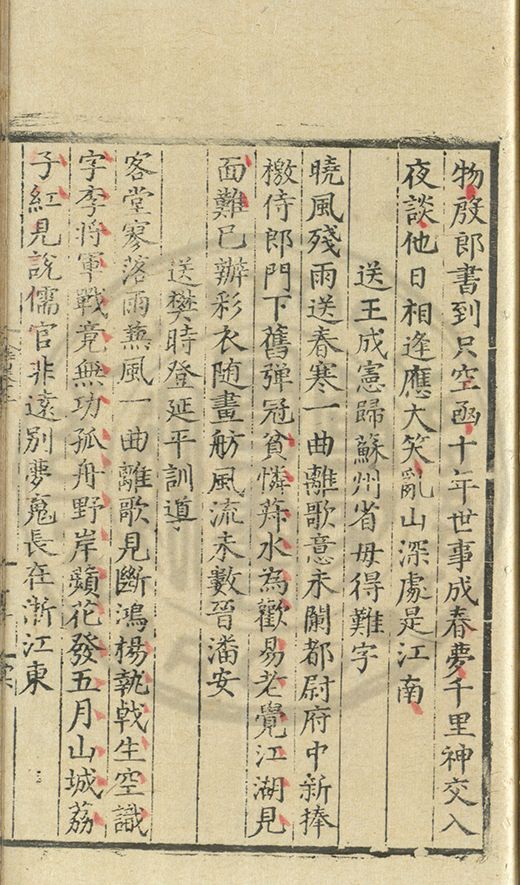 物殷郎書到只空函十年世事成春夢千里神交入
夜談他日相逢應大笑亂山深處是江南
送王成憲歸蘇州省母得難字
曉風殘雨送春寒一曲離歌意未闌都尉府中新捧
檄侍郎門下舊彈冠貧憐菽水為歡易老覺江湖見
面難已辦彩衣随畫舫風流未數晉潘安
送樊時登延平訓導
客堂寥落雨蕭風一曲離歌見斷鴻楊執戟生空識
字李將軍戰竟無功孤舟野岸蘋花發五月山城荔
子紅見說儒官非遠別夢䰟長在浙江東